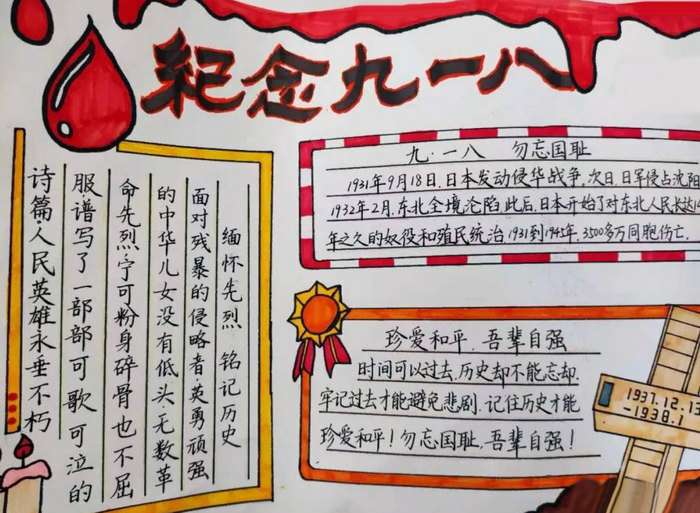 纪念九一八
九·一八 勿忘国耻
1931年9月18日.日本发动侵华战争,次日,日军侵占沈阳
1932年2月,东北全境沦陷.此后,日本开始了对东北人民长达14
年之久的奴役和殖民统治1931到1945年.3500多万同胞伤亡.
缅怀先烈 铭记历史
面对残暴的侵略者.英勇顽强
的中华儿女没有低头.无数革
命先烈.宁可粉身碎骨也不屈
服谱写了一部部可歌可泣的
诗篇.人民英雄永垂不朽
珍爱和平.吾辈自强
时间可以过去.历史却不能忘却.
牢记过去才能避免悲剧.记住历史才能
珍爱和平!勿忘国耻.吾辈自强!
1937.12.13
-1938.1